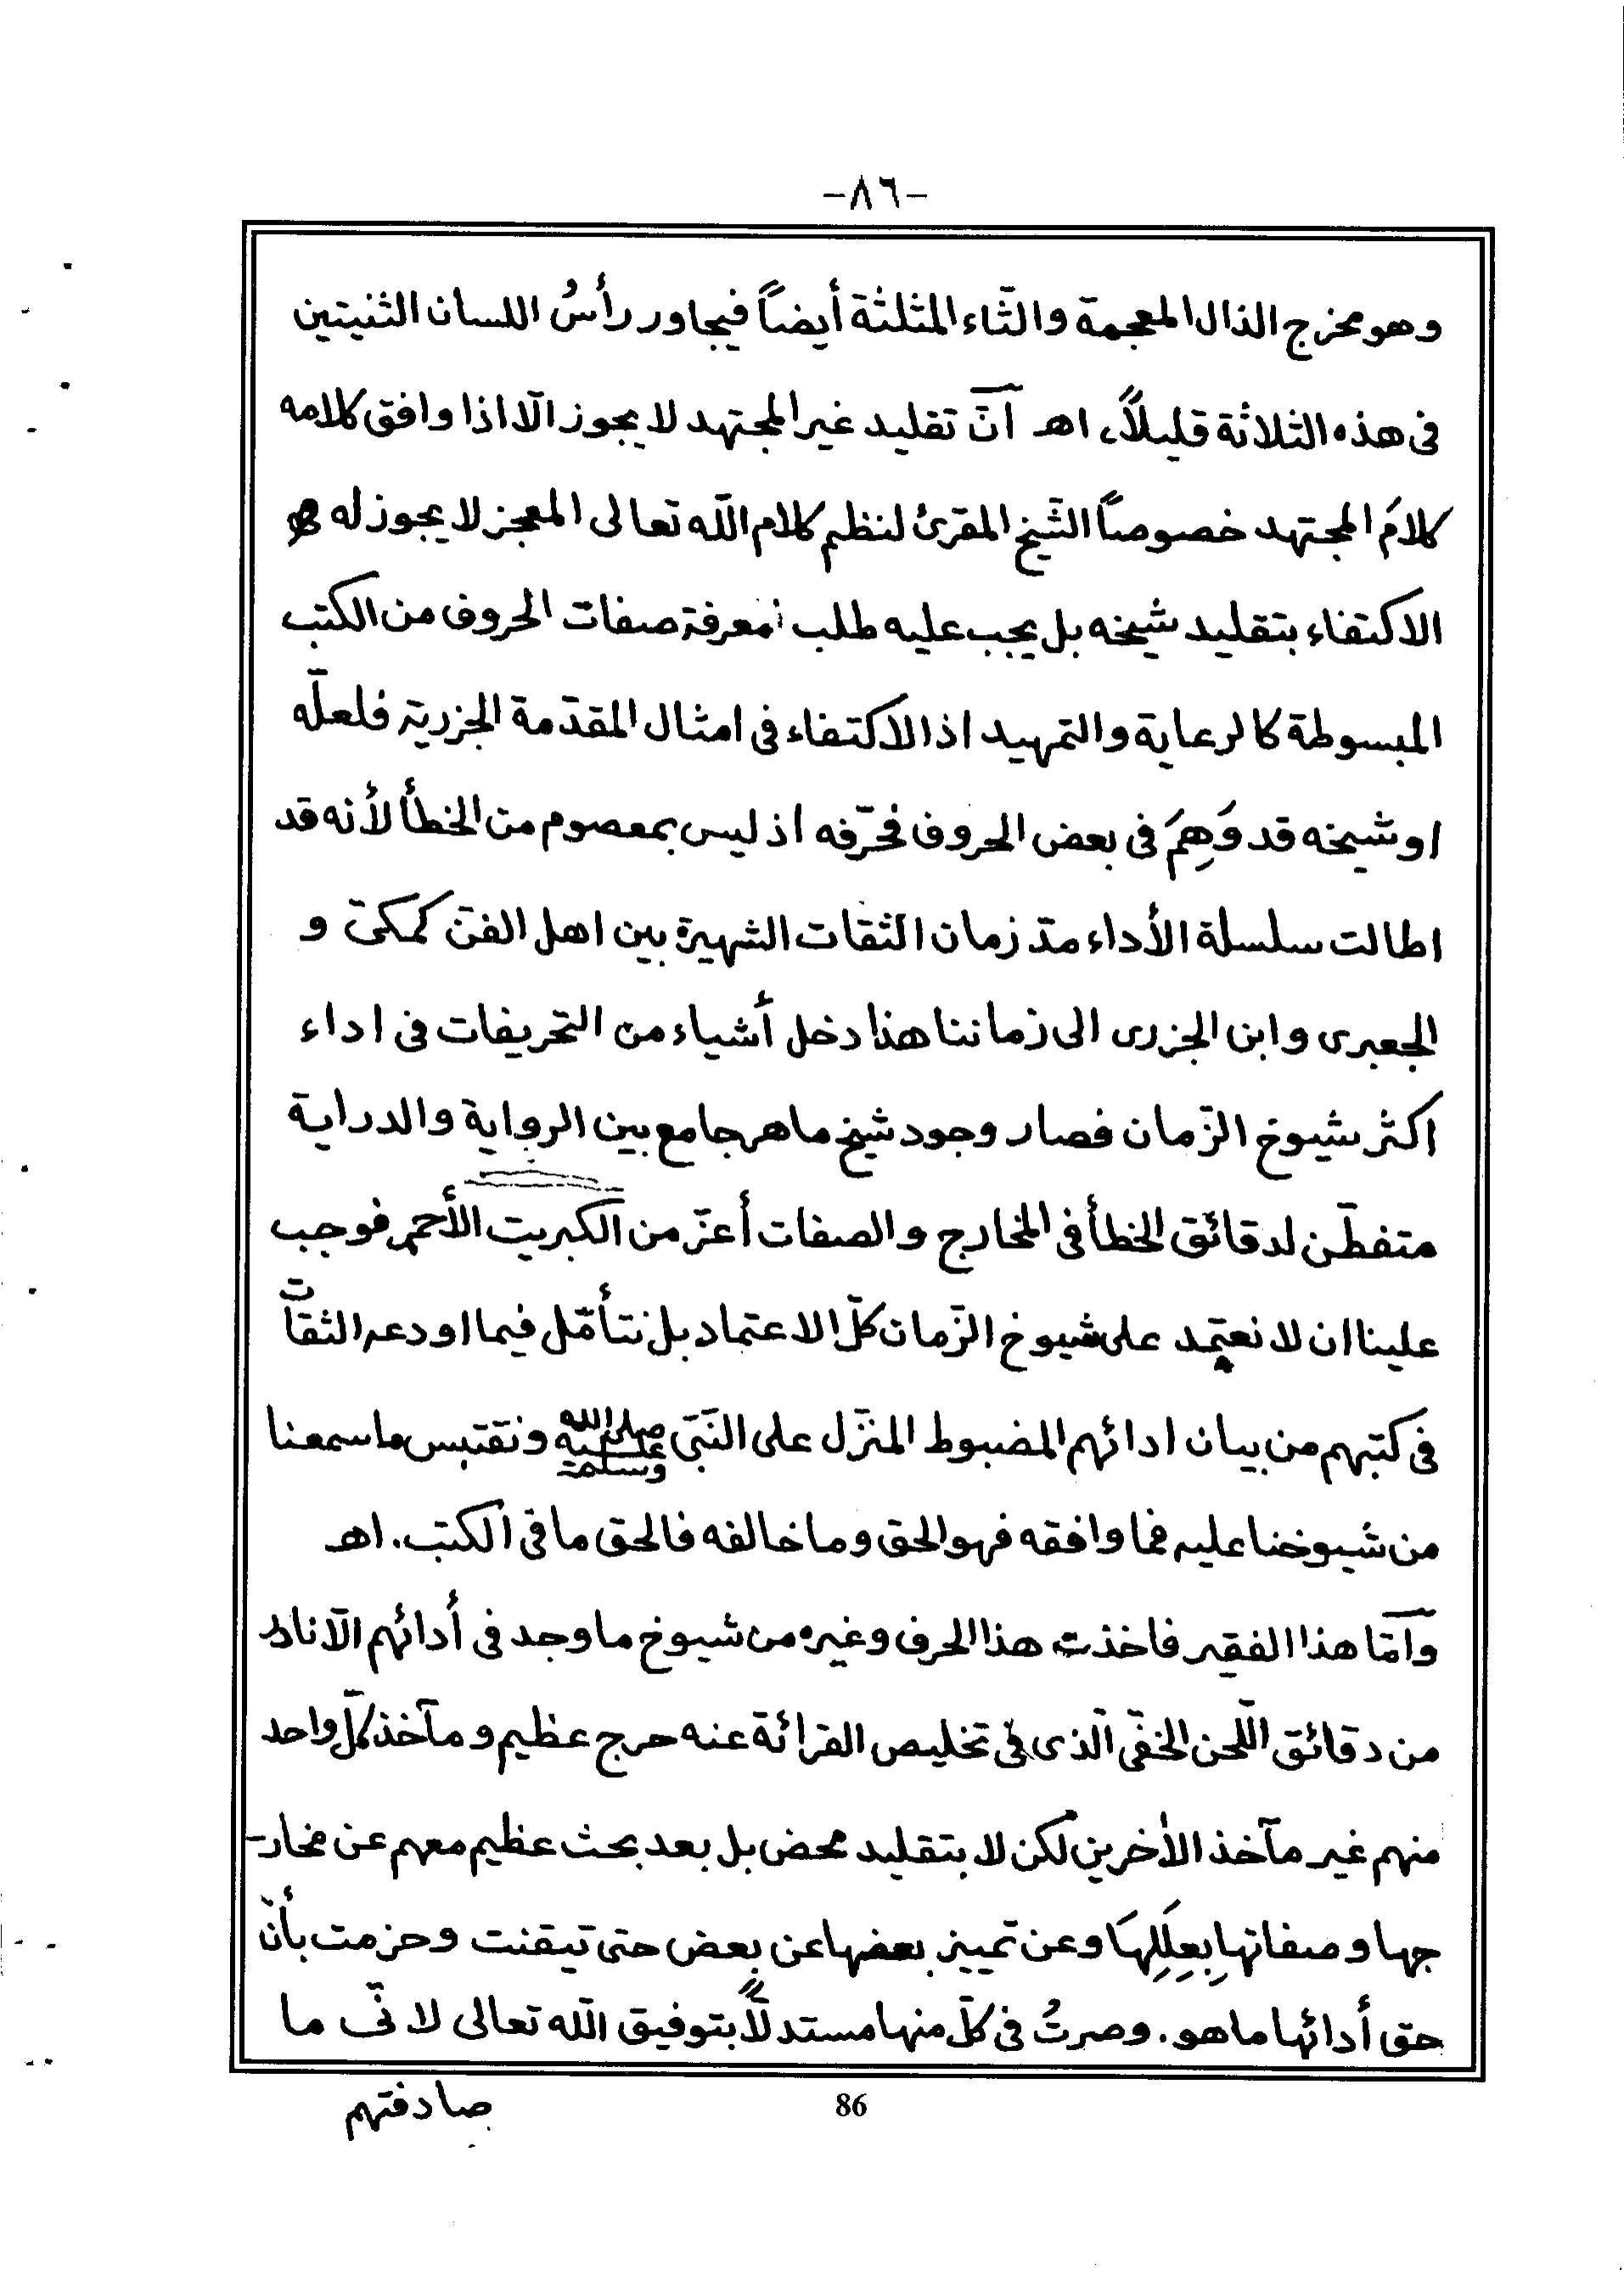 -٨٦-
وهو مخرج الذال المعجمة والثاء المثلثة أيضاً فيجاور رأسُ اللسان الثنيتين
فى هذه الثلاثة قليلاً، اهـ آنّ تقليد غير المجتهد لا يجوز الّا اذا وافق كلامه
كلامَ المجتهد خصوصاً الشّيخ المقرئ لنظم كلام اللّه تعالى المعجز لا يجوز له
الاكتفاء بتقليد شيخه بل يجب عليه طلب معرفة صفات الحروف من الكتب
المبسوطة كالرعاية والتمهيد اذ الاكتفاء فى امثال المقدّمة الجزرية فلعلّه
او شيخه قد وَهِمَ فى بعض الحروف فحرّفه اذ ليس بمعصوم من الخطأ لأنه قد
اطالت سلسلة الأداء مذ زمان الثقات الشهيرة بين اهل الفنّ كمكىّ و
الجعبرى وابن الجزرى الى زماننا هذا دخل أشياء من التحريفات فى اداء
اكثر شيوخ الزّمان فصار وجود شيخ ماهر جامع بين الرواية والدراية
متفطّن لدقائق الخطأ فى المخارج والصفات أعزّ من الكبريت الأحمر فوجب
علينا ان لا نعتمد على شيوخ الزّمان كلّ الاعتماد بل نتأمّل فيما اودعه الثقات
فى كتبهم من بيان ادائهم المضبوط المنزّل على النّبىّ صلى الله عليه وسلم ونقتبس ما سمعنا
من شيوخنا عليه فما وافقه فهو الحق وما خالفه فالحق ما فى الكتب. اهـ
وآمّا هذا الفقير فاخذت هذا الحرف وغيره من شيوخ ما وجد فى أدائهم الّا نادر
من دقائق اللّحن الخفّى الّذى فى تخليص القرائة عنه حرج عظيم و مآخذ كلّ واحد
منهم غير مآخذ الأخرين لكن لا بتقليد محض بل بعد بحث عظيم معهم عن مخار-
جها وصفاتها بِعِلَلِهَا وعن تمييز بعضها عن بعض حتى تيقنت وحزمت بأنّ
حق أدائها ما هو. وصرتُ فى كلّ منها مستدلّاً بتوفيق اللّه تعالى لا نّى ما
صادفتهم
86